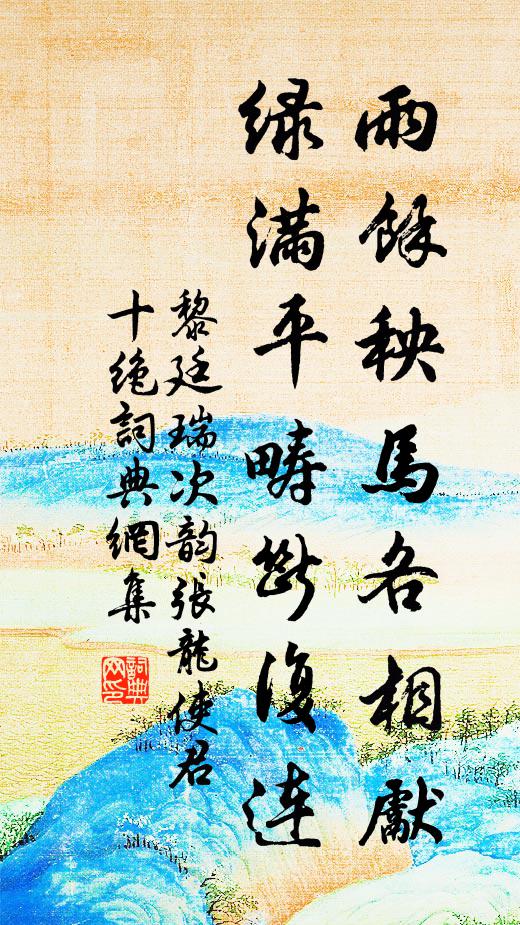 雨餘秧馬各相獻
綠滿平疇斷復連
黎廷瑞次韵張龍使君
十絕詞典網集
詞典網印